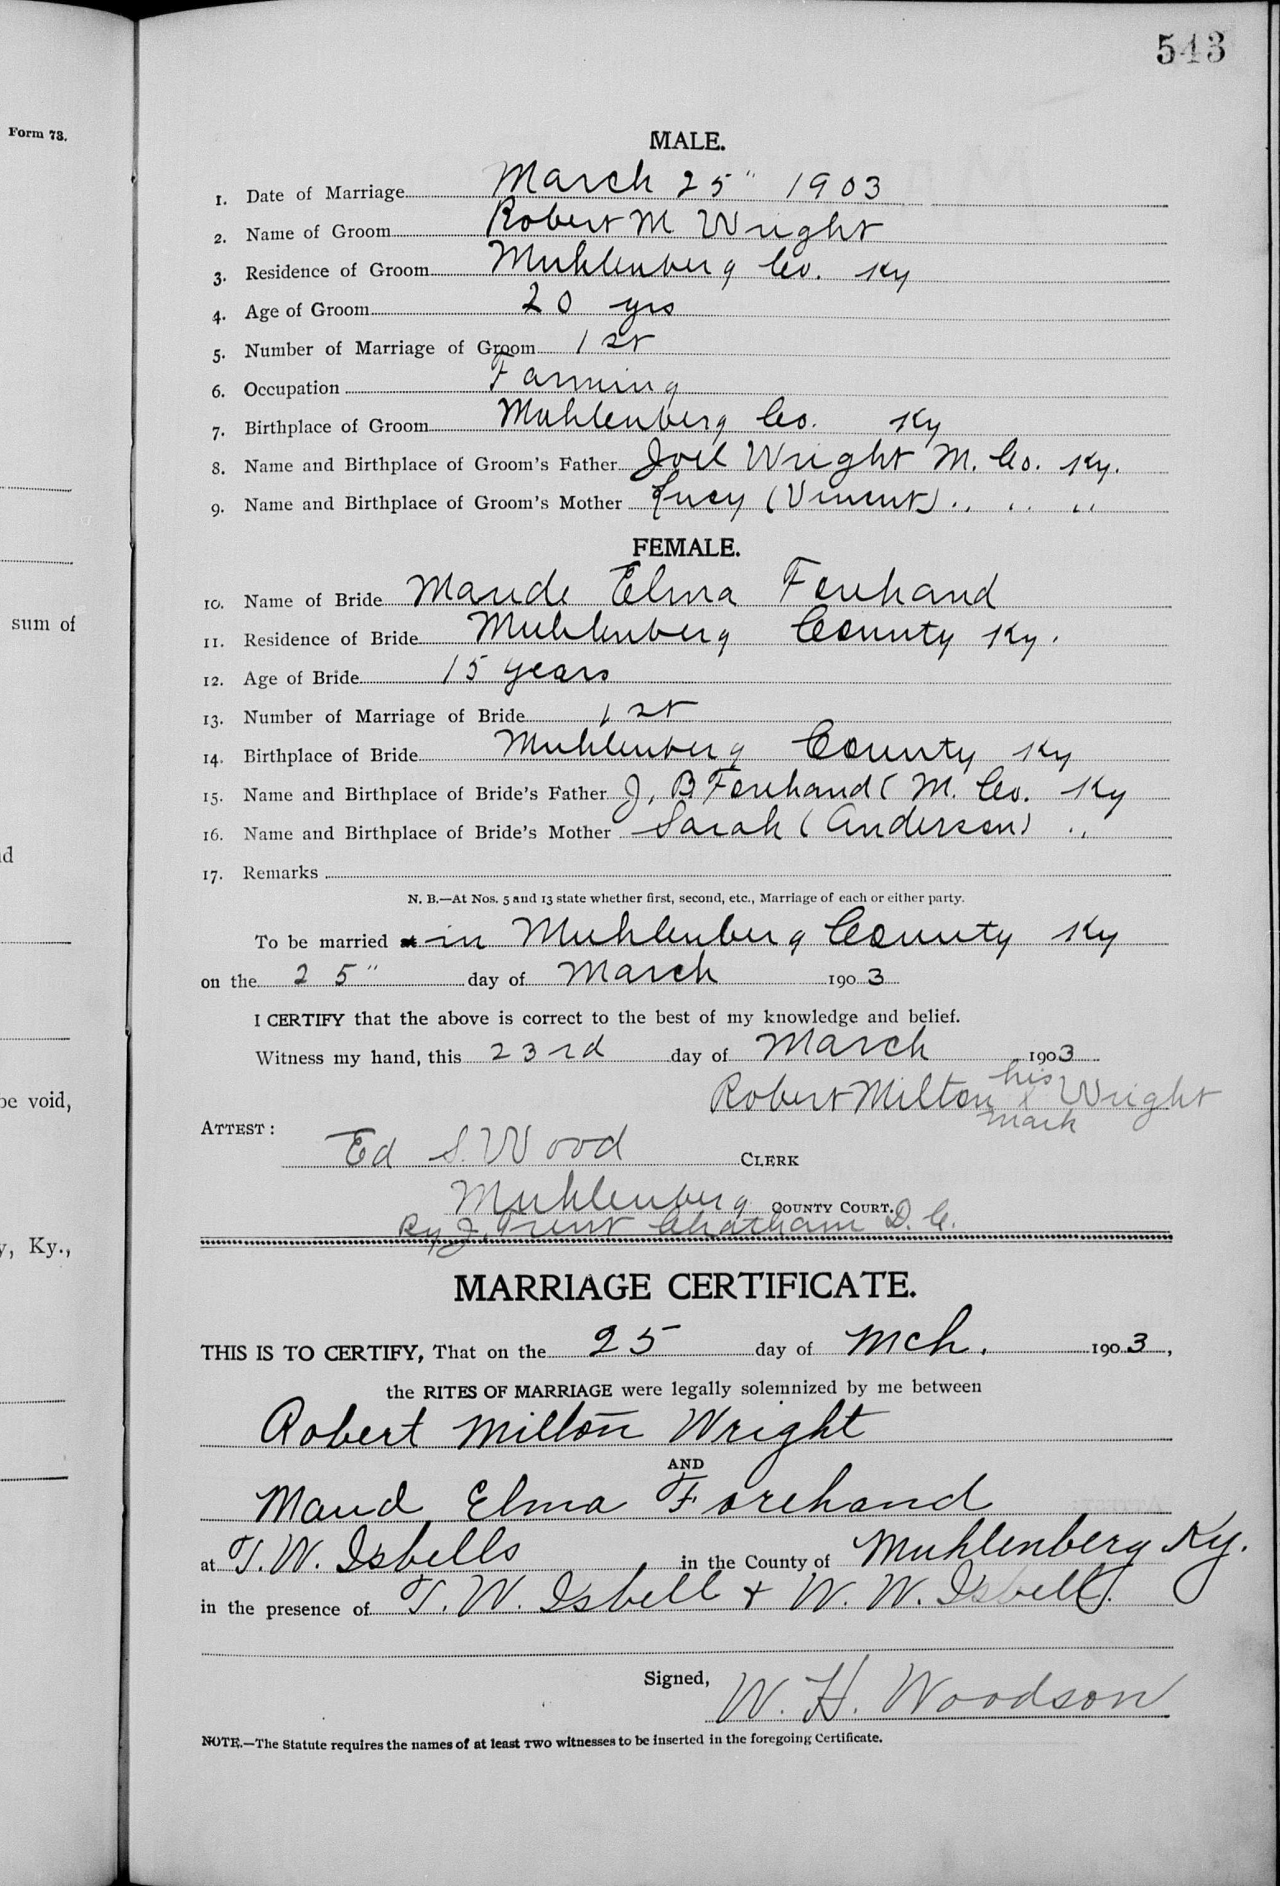 543
Form 73.
MALE.
1. Date of Marriage March 25" 1903
2. Name of Groom Robert M Wright
3. Residence of Groom Muhlenberg Co. Ky
4. Age of Groom 20 yrs
5. Number of Marriage of Groom 1st
6. Occupation Farming
7. Birthplace of Groom Muhlenberg Co. Ky
8. Name and Birthplace of Groom's Father Joel Wright M. Co. Ky.
9. Name and Birthplace of Groom's Mother Lucy (Vincent) " " "
FEMALE.
10. Name of Bride Maude Elma Forehand
11. Residence of Bride Muhlenberg County Ky.
sum of
12. Age of Bride 15 years
13. Number of Marriage of Bride 1st
14. Birthplace of Bride Muhlenberg County Ky
15. Name and Birthplace of Bride's Father J. B Forehand ( M. Co. Ky
16. Name and Birthplace of Bride's Mother Sarah (Anderson) "
17. Remarks
N. B.—At Nos. 5 and 13 state whether first, second, etc., Marriage of each or either party.
To be married in Muhlenberg County Ky
on the 25" day of March 1903
I CERTIFY that the above is correct to the best of my knowledge and belief.
Witness my hand, this 23rd day of March 1903
be void,
his
Robert Milton x Wright
mark
ATTEST:
Ed S. Wood CLERK
Muhlenberg COUNTY COURT.
By J. Trent Chatham D. C.
y, Ky.,
MARRIAGE CERTIFICATE.
THIS IS TO CERTIFY, That on the 25 day of Mch. 1903,
the RITES OF MARRIAGE were legally solemnized by me between
Robert Milton Wright
AND
Maud Elma Forehand
at T. W. Isbells in the County of Muhlenberg Ky.
in the presence of T. W. Isbell + W. W. Isbell.
Signed, W. H. Woodson
NOTE.—The Statute requires the names of at least TWO witnesses to be inserted in the foregoing Certificate.